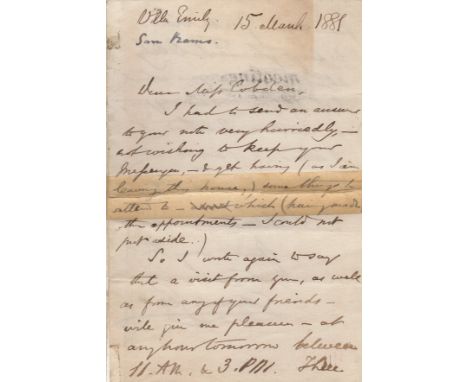 Villa Emily 15. March. 1881
San Remo.
Dear Miss Cobden,
I had to send an answer
to your note very hurriedly, –
not wishing to keep your
Messenger, – & yet having (as I am
leaving this house,) some things to
attend to – which (having made
the appointments – I could not
put aside.)
So I write again to say
that a visit from you, as well
as from any of your friends –
will give me pleasure – at
any hour tomorrow between
11. AM. & 3. PM.